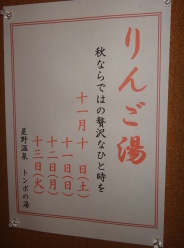 りんご湯
秋ならではの贅沢なひと時を
十一月十日(土)
十一日(日)
十二日(月)
十三日(火)
星野温泉 トンボの湯